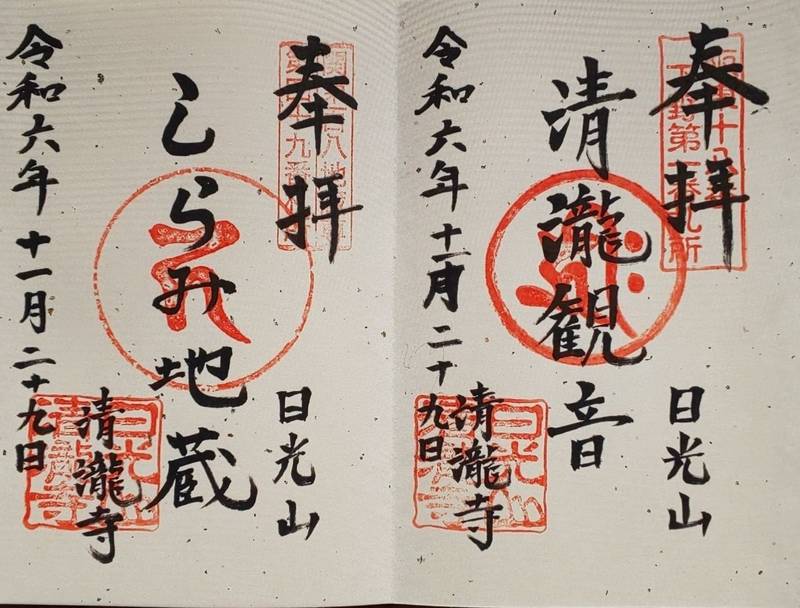 奉拝
清瀧観音
日光山
清瀧寺
令和六年十一月二十九日
日光山
清瀧寺
奉拝
しらみ地蔵
日光山
清瀧寺
令和六年十一月二十九日
日光山
清瀧寺